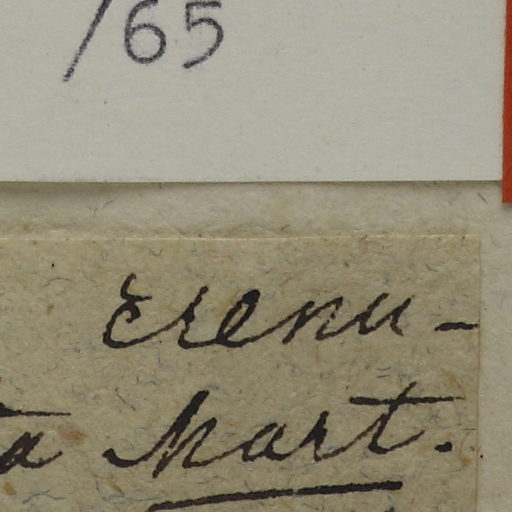 /65
crenu-
ta Mart.